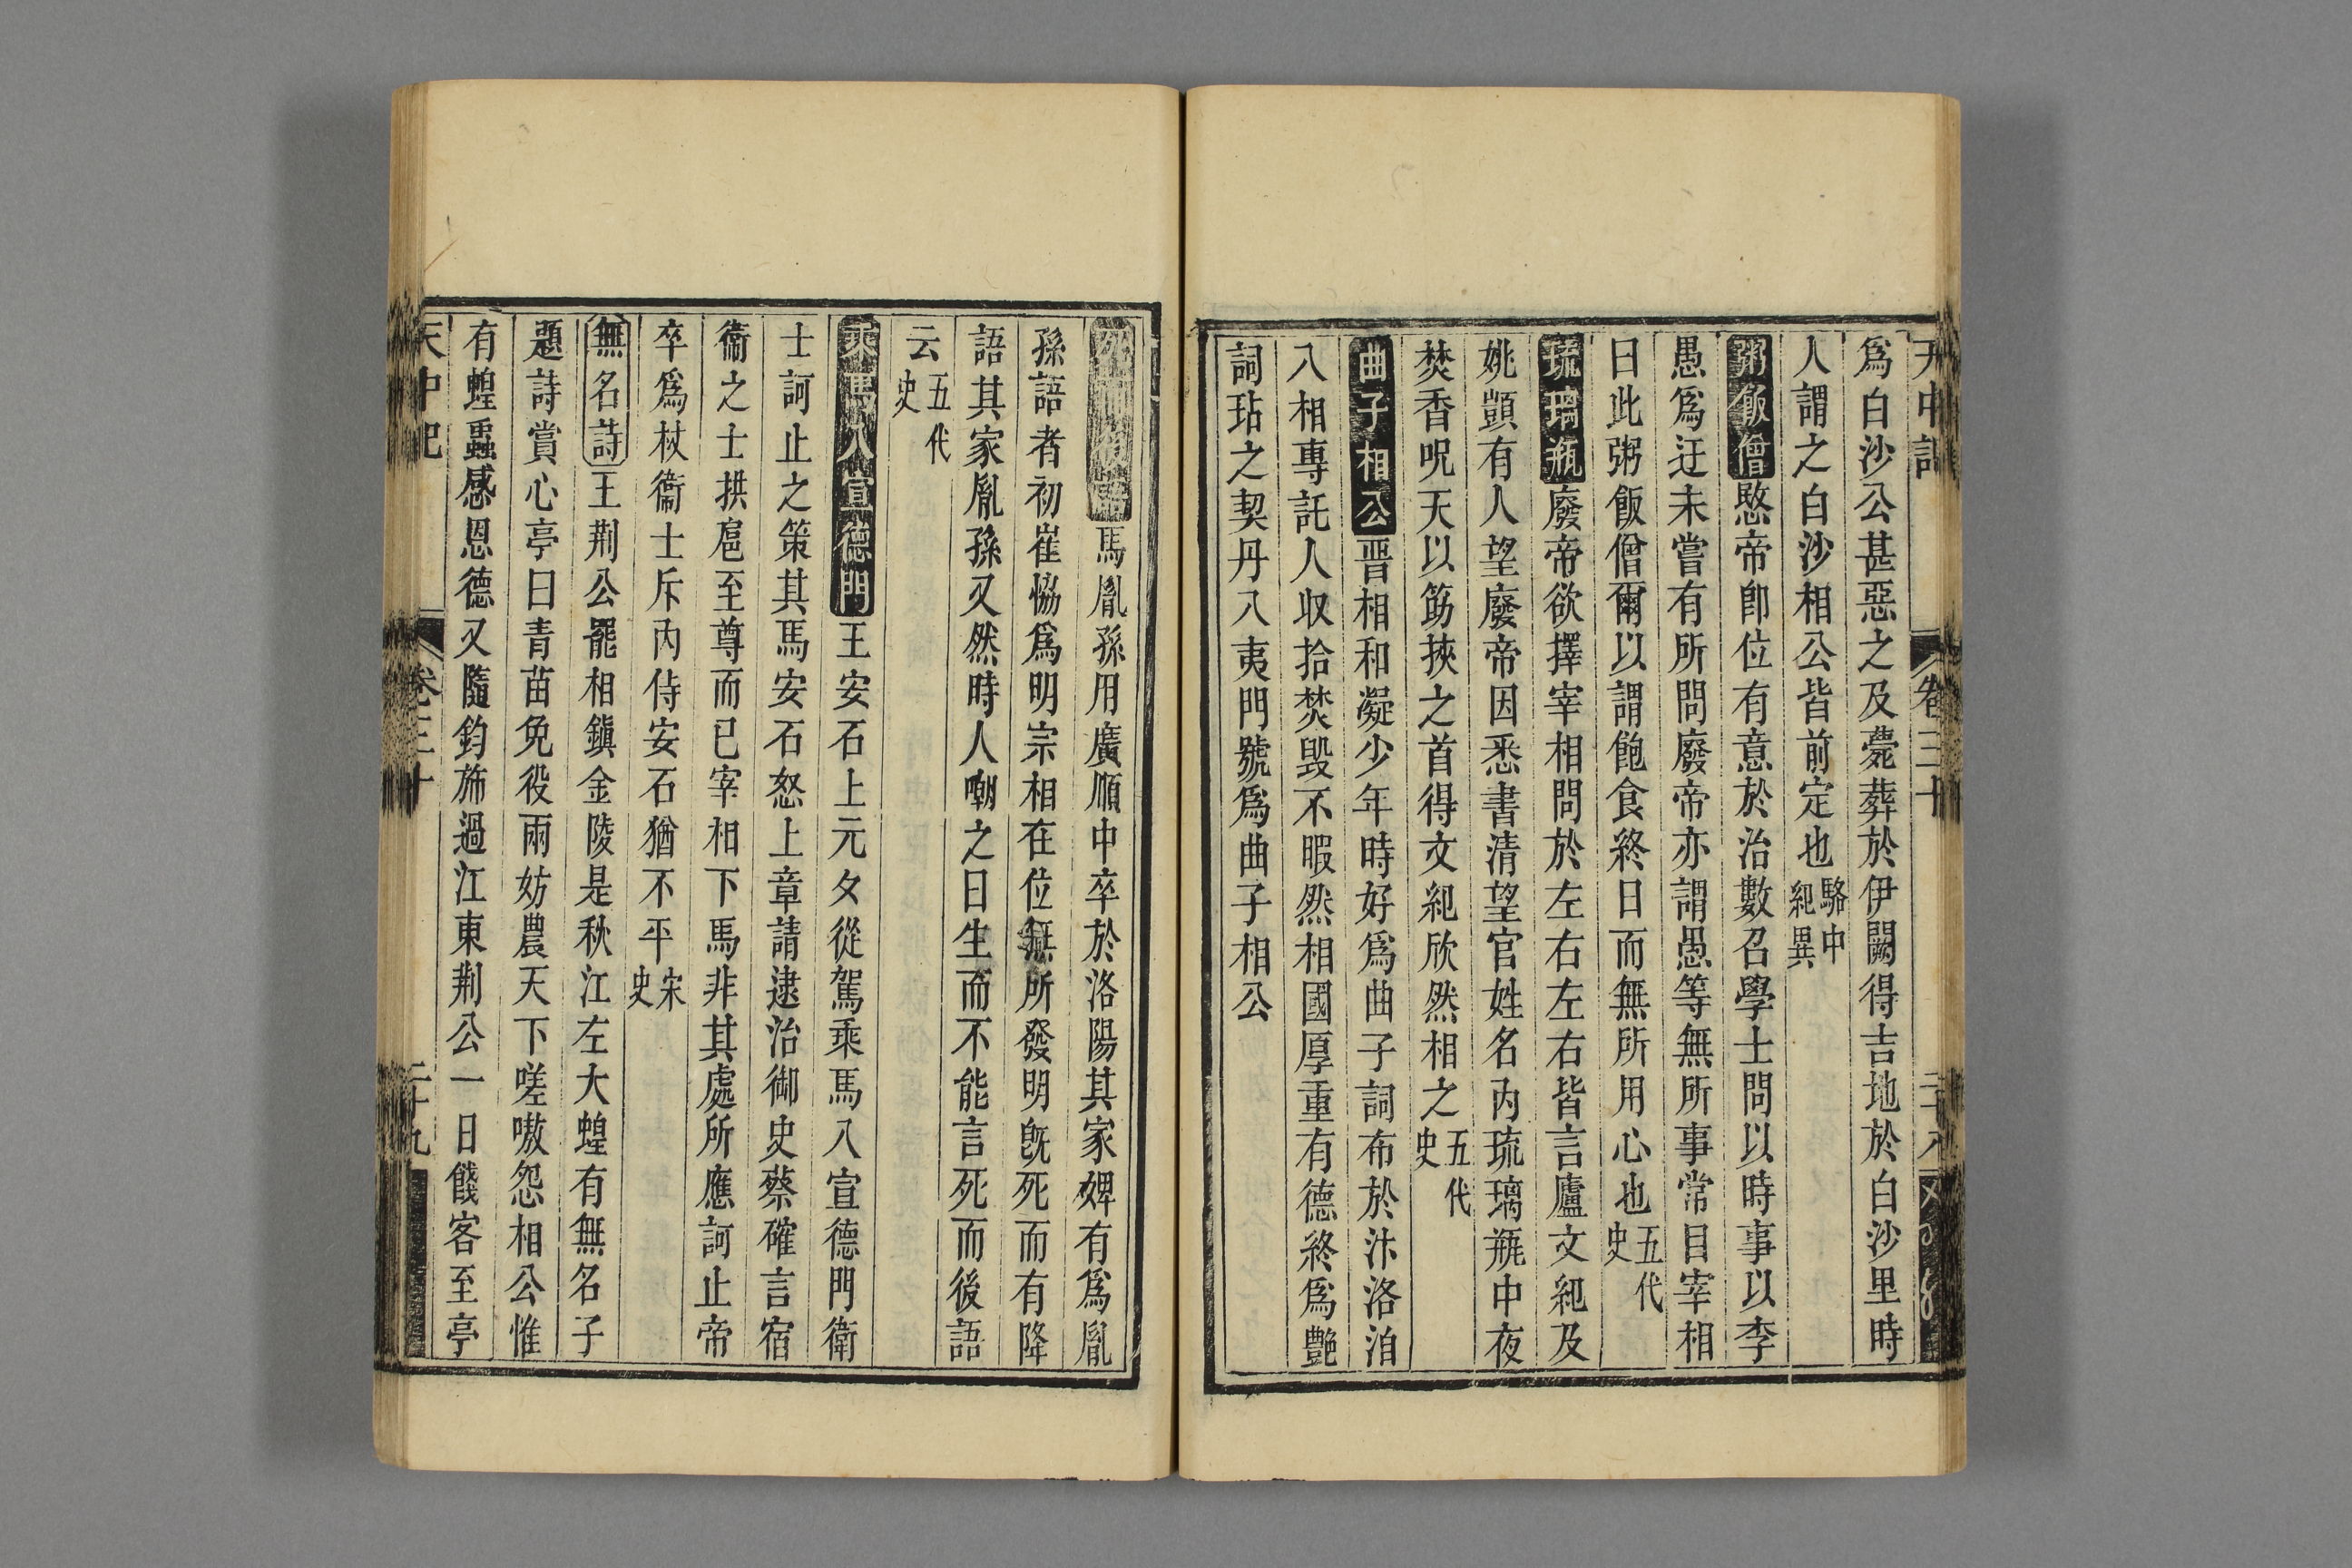 天中記 卷三十 二十八
為白沙公甚惡之及薨葬於伊闕得吉地於白沙里時
人謂之白沙相公皆前定也駱中紀異
粥飯僧愍帝卽位有意於治數召學士問以時事以李
愚爲迂未嘗有所問廢帝亦謂愚等無所事常目宰相
曰此粥飯僧爾以謂飽食終日而無所用心也五代史
琉璃瓶廢帝欲擇宰相問於左右左右皆言盧文紀及
姚顗有人望廢帝因悉書清望官姓名內琉璃瓶中夜
焚香呪天以筯挾之首得文紀欣然相之五代史
曲子相公晋相和凝少年時好爲曲子詞布於汴洛洎
入相專託人收拾焚毀不暇然相國厚重有德終爲艷
詞玷之契丹入夷門號爲曲子相公
死而後語馬胤孫用廣順中卒於洛陽其家婢有爲胤
孫語者初崔協爲明宗相在位無所發明旣死而有降
語其家胤孫又然時人嘲之曰生而不能言死而後語
云五代史
乘馬入宣德門王安石上元夕從駕乘馬入宣德門衛
士訶止之策其馬安石怒上章請逮治御史蔡確言宿
衞之士拱扈至尊而已宰相下馬非其處所應訶止帝
卒爲杖衞士斥內侍安石猶不平宋史
無名詩王荆公罷相鎭金陵是秋江左大蝗有無名子
題詩賞心亭曰青苗免役兩妨農天下嗟嗷怨相公惟
有蝗蟲感恩德又隨鈞斾過江東荆公一日餞客至亭
天中記 卷三十 二十九